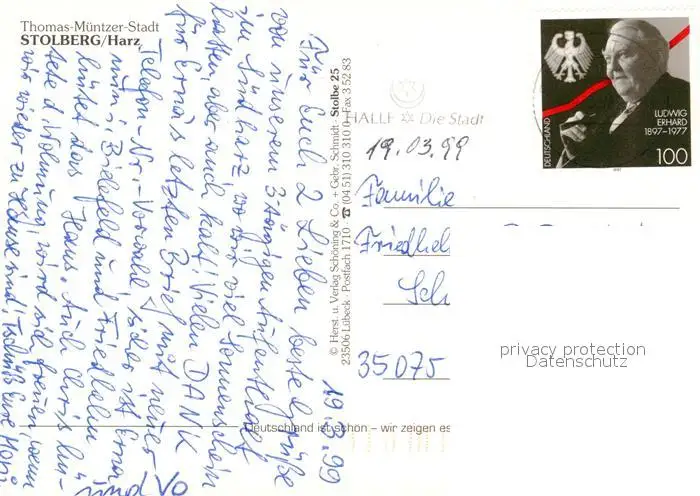 Thomas-Müntzer-Stadt
STOLBERG/Harz
Für Euch 2 Lieben beste Grüße
von unserem 3-tägigen Aufenthalt
im Südharz, wo wir viel Sonnenschein
hatten, aber auch kalt! Vielen DANK
für Erna's letzten Brief mit neuer
Telefon-Nr.-Vorwahl, sicher ist Erna
nun i. Bielefeld und Friedhelm
hütet das Haus. Auch
d. Wohnung, wird sich freuen, wenn
wir wieder zu Hause sind, Tschüß Eure
und
19.3.99
© Herst. u. Verlag Schöning & Co. + Gebr. Schmidt · Stolbe 25
23506 Lübeck · Postfach 1710 · ☎ (04 51) 310 310 · Fax 3 52 83
HALLE ✡ Die Stadt
19.03.99
DEUTSCHLAND
LUDWIG
ERHARD
1897–1977
100
Familie
35075
privacy protection
Datenschutz
Deutschland ist schön – wir zeigen es